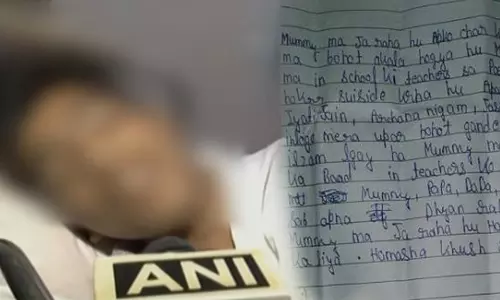 Mummy ma Ja raha hu Apko char k
ma bohot akala hogya hu
ma in school ki teachers sa
hokar suicide krha hu Apa
Jyoti Jain, Archana nigam,
mera upar bohot ganda
ilzam lgay ha Mummy ma
Baad in teachers ko
Mummy, PAPA, DADA
apna Dhyan rakh
Mummy ma Ja raha hu
Hamasha Khush
ANI